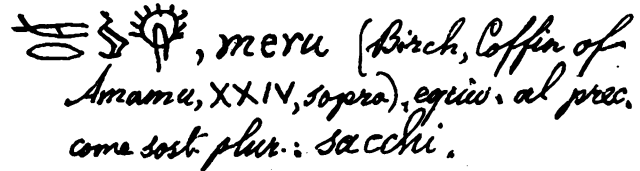 , meru (Birch, Coffin of
Amamu, XXIV, sopra), equiv. al prec.
come sost. plur.: sacchi.